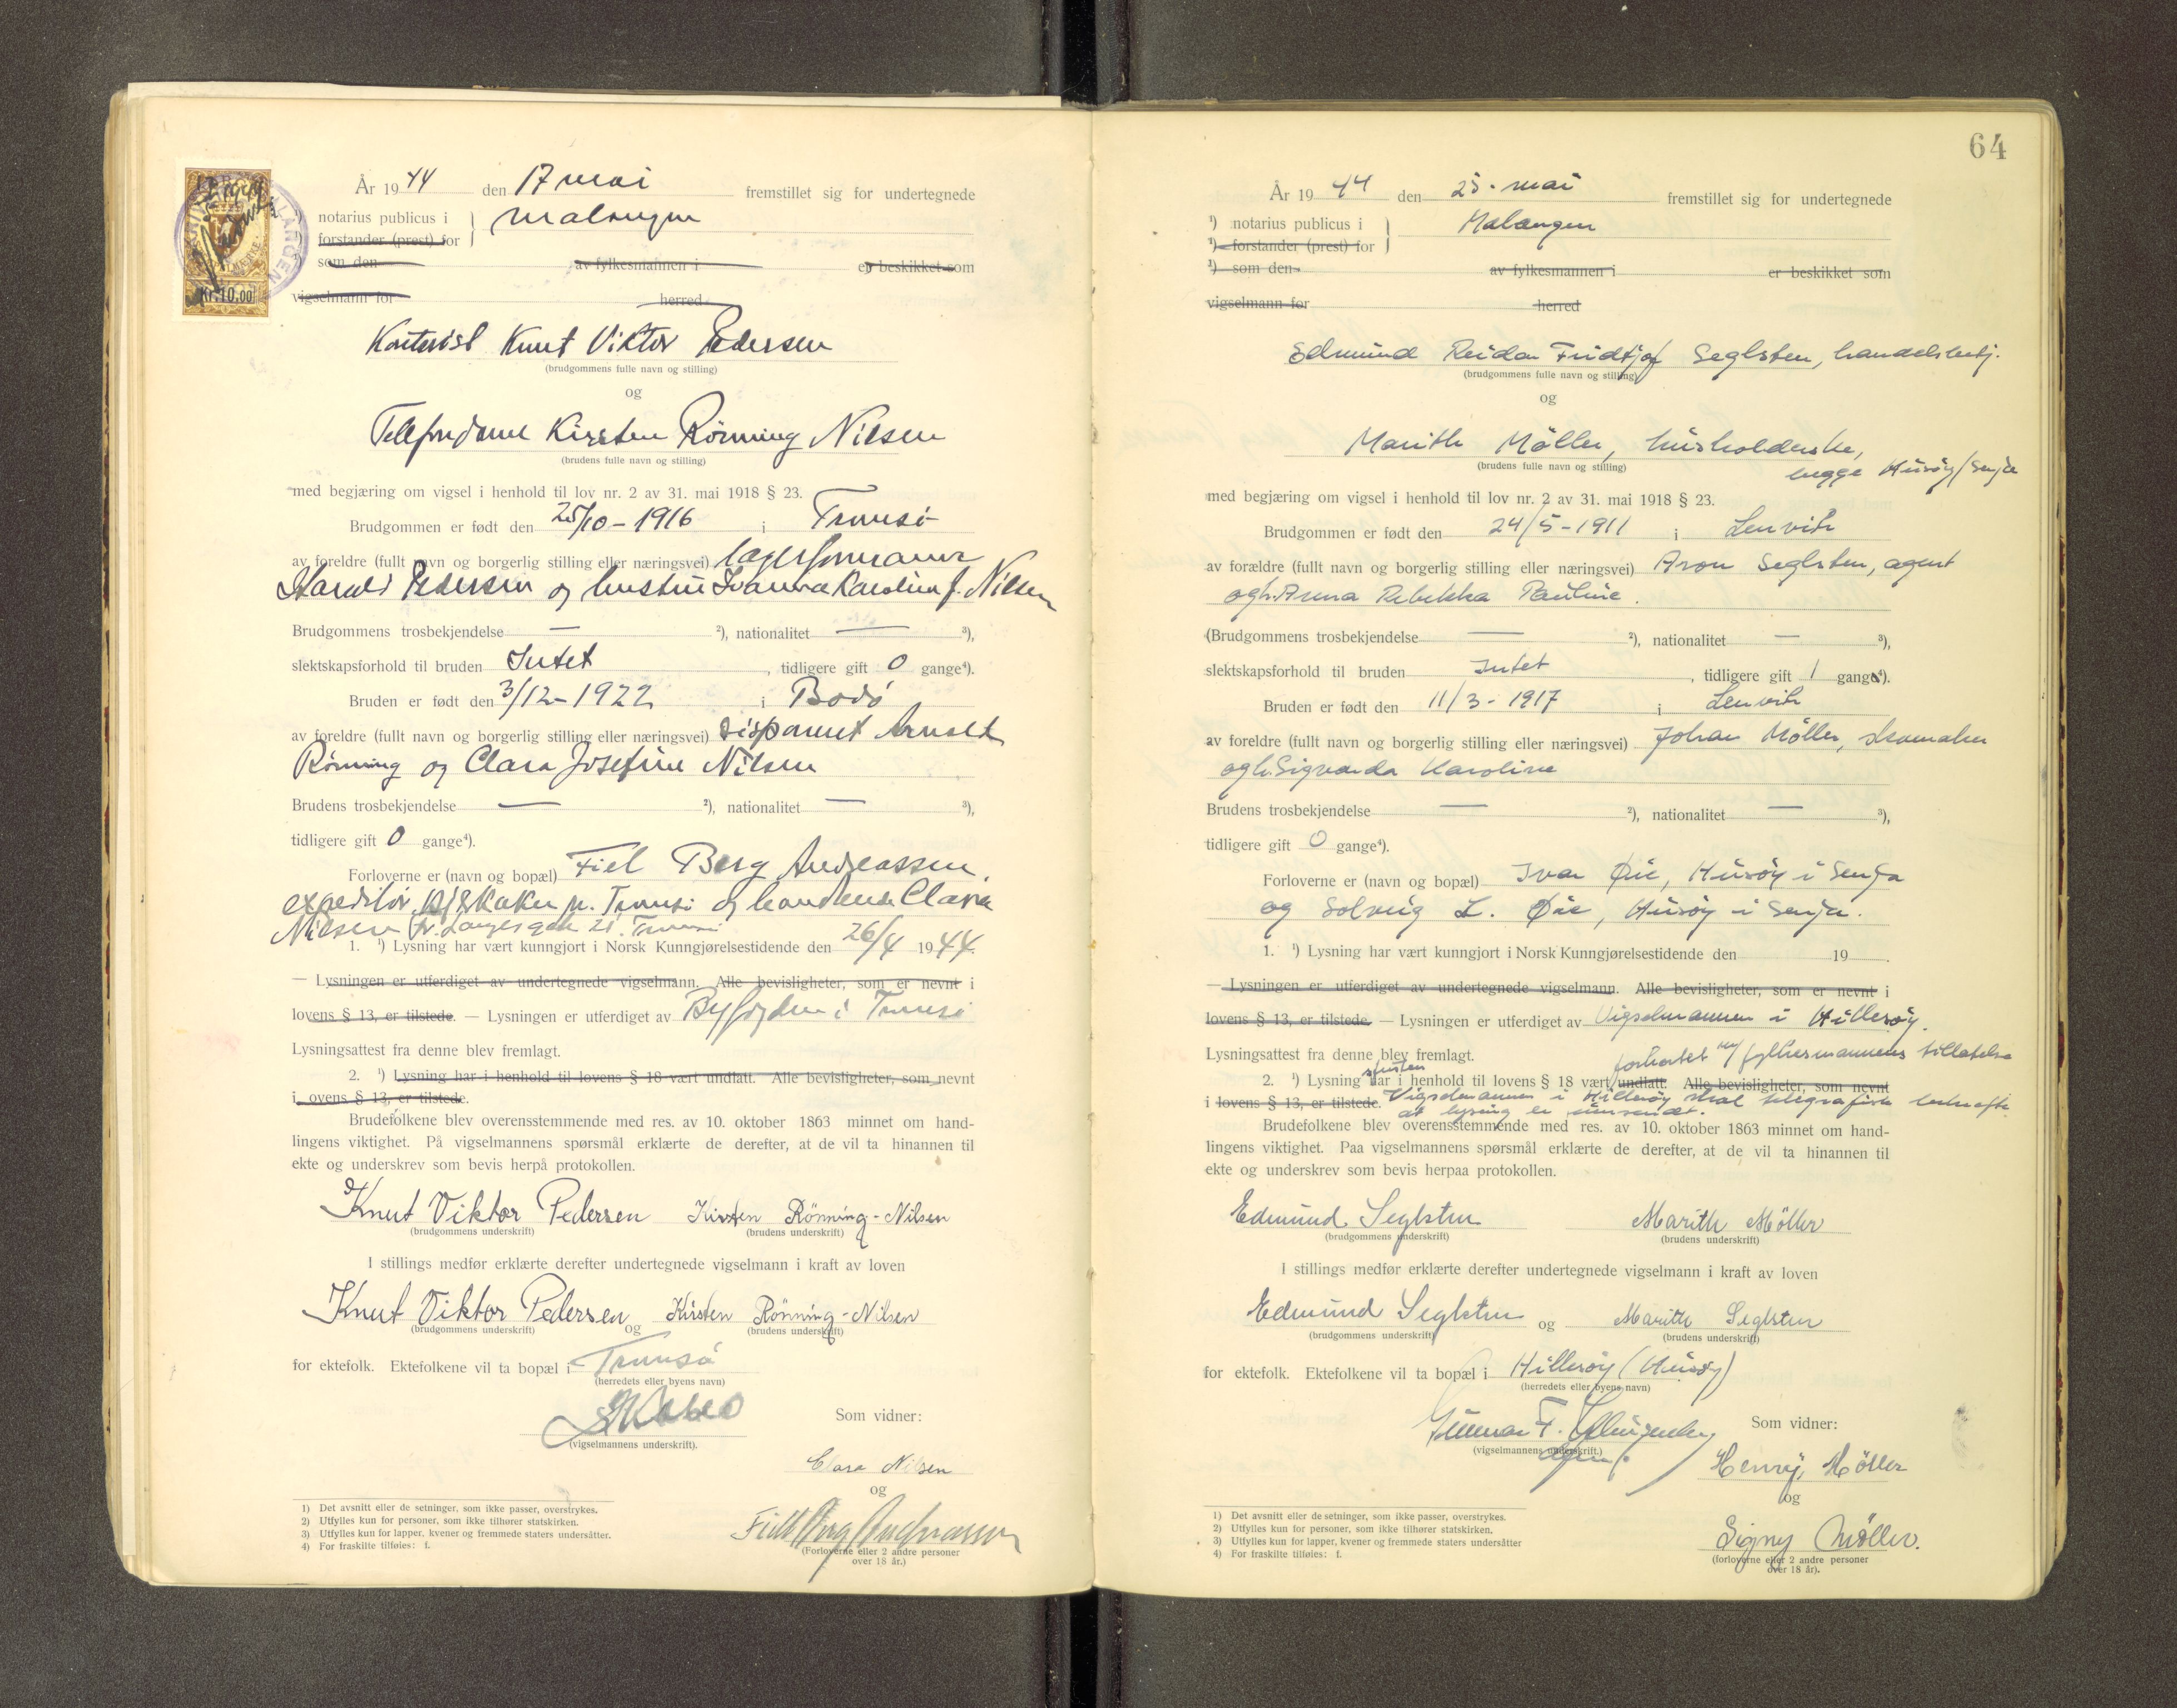 År 1944 den 17 mai fremstillet sig for undertegnede
notarius publicus i Malangen
forstander (prest) for
som den av fylkesmannen i er beskikket som
vigselmann for herred
Kr. 10.00
Kontorist Knut Viktor Pedersen
(brudgommens fulle navn og stilling)
og
Telefondame Kirsten Rönning Nilsen
(brudens fulle navn og stilling)
med begjæring om vigsel i henhold til lov nr. 2 av 31. mai 1918 § 23.
Brudgommen er født den 25/10-1916 i Tromsö
av foreldre (fullt navn og borgerlig stilling eller næringsvei) lagerformann
Harald Pedersen og hustru Ivanna Karoline f. Nilsen
Brudgommens trosbekjendelse — ²), nationalitet — ³),
slektskapsforhold til bruden Intet, tidligere gift 0 gange⁴).
Bruden er født den 3/12-1922 i Bodö
av foreldre (fullt navn og borgerlig stilling eller næringsvei) disponent Arnold
Rönning og Clara Josefine Nilsen
Brudens trosbekjendelse — ²), nationalitet — ³),
tidligere gift 0 gange⁴).
Forloverne er (navn og bopæl) Fiel Berg Andreassen,
expeditör, Kjskaken p. Tromsö og Clara
Nilsen Fr. Langesgate 21. Tromsö
1. ¹) Lysning har vært kunngjort i Norsk Kunngjørelsestidende den 26/4 1944.
— Lysningen er utferdiget av undertegnede vigselmann. Alle bevisligheter, som er nevnt i
lovens § 13, er tilstede. — Lysningen er utferdiget av Byfogden i Tromsö
Lysningsattest fra denne blev fremlagt.
2. ¹) Lysning har i henhold til lovens § 18 vært undlatt. Alle bevisligheter, som nevnt
i lovens § 13, er tilstede.
Brudefolkene blev overensstemmende med res. av 10. oktober 1863 minnet om hand-
lingens viktighet. På vigselmannens spørsmål erklærte de derefter, at de vil ta hinannen til
ekte og underskrev som bevis herpå protokollen.
Knut Viktor Pedersen Kirsten Rönning-Nilsen
(brudgommens underskrift) (brudens underskrift)
I stillings medfør erklærte derefter undertegnede vigselmann i kraft av loven
Knut Viktor Pedersen og Kirsten Rönning-Nilsen
(brudgommens underskrift) (brudens underskrift)
for ektefolk. Ektefolkene vil ta bopæl i Tromsö
(herredets eller byens navn)
Som vidner:
(vigselmannens underskrift).
Clara Nilsen
og
Fiell Berg Andreassen
(Forloverne eller 2 andre personer
over 18 år.)
1) Det avsnitt eller de setninger, som ikke passer, overstrykes.
2) Utfylles kun for personer, som ikke tilhører statskirken.
3) Utfylles kun for lapper, kvener og fremmede staters undersåtter.
4) For fraskilte tilføies: f.
64
År 1944 den 25. mai fremstillet sig for undertegnede
¹) notarius publicus i Malangen
¹) forstander (prest) for
¹) som den av fylkesmannen i er beskikket som
vigselmann for herred
Edmund Reidar Fridtjof Seglsten, handelsbetj.
(brudgommens fulle navn og stilling)
og
Marith Möller, husholderske,
(brudens fulle navn og stilling)
begge Husöy/Senja
med begjæring om vigsel i henhold til lov nr. 2 av 31. mai 1918 § 23.
Brudgommen er født den 24/5-1911 i Lenvik
av forældre (fullt navn og borgerlig stilling eller næringsvei) Aron Seglsten, agent
og h. Anna Rebekka Pauline.
(Brudgommens trosbekjendelse — ²), nationalitet — ³),
slektskapsforhold til bruden Intet, tidligere gift 1 gange⁴).
Bruden er født den 11/3-1917 i Lenvik
av foreldre (fullt navn og borgerlig stilling eller næringsvei) Johan Möller, skomaker
og h. Sigvarda Karoline
Brudens trosbekjendelse — ²), nationalitet — ³),
tidligere gift 0 gange⁴).
Forloverne er (navn og bopæl) Ivar Øie, Husöy i Senja
og Solveig L. Øie, Husöy i Senja.
1. ¹) Lysning har vært kunngjort i Norsk Kunngjørelsestidende den 19 .
— Lysningen er utferdiget av undertegnede vigselmann. Alle bevisligheter, som er nevnt i
lovens § 13, er tilstede. — Lysningen er utferdiget av Vigselmannen i Hillesöy.
Lysningsattest fra denne blev fremlagt.
forkortet m/fylkesmannens tillatelse
2. ¹) Lysning har i henhold til lovens § 18 vært undlatt. Alle bevisligheter, som nevnt
i lovens § 13, er tilstede. Vigselmannen i Hillesöy skal telegrafisk bekrefte
at lysning er
Brudefolkene blev overensstemmende med res. av 10. oktober 1863 minnet om hand-
lingens viktighet. Paa vigselmannens spørsmål erklærte de derefter, at de vil ta hinannen til
ekte og underskrev som bevis herpaa protokollen.
Edmund Seglsten Marith Möller
(brudgommens underskrift) (brudens underskrift)
I stillings medfør erklærte derefter undertegnede vigselmann i kraft av loven
Edmund Seglsten og Marith Seglsten
(brudgommens underskrift) (brudens underskrift)
for ektefolk. Ektefolkene vil ta bopæl i Hillesöy (Husöy)
(herredets eller byens navn)
Gunnar F. Som vidner:
(vigselmannens underskrift.)
Henry Möller
og
Signy Möller.
(forloverne eller 2 andre personer
over 18 år).
1) Det avsnitt eller de setninger, som ikke passer, overstrykes.
2) Utfylles kun for personer, som ikke tilhører statskirken.
3) Utfylles kun for lapper, kvener og fremmede staters undersåtter
4) For fraskilte tilføies: f.